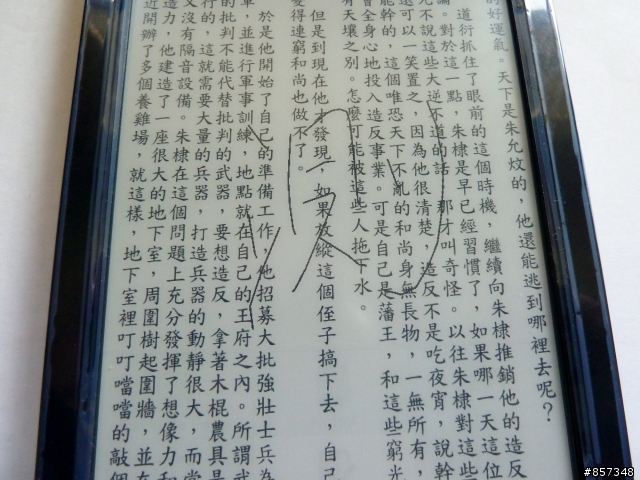 的好運氣。天下是朱允炆的,他還能逃到哪裡去呢?
道衍抓住了眼前的這個時機,繼續向朱棣推銷他的造反
論。對於這一點,朱棣是早已經習慣了,如果哪一天這位
不說這些大逆不道的話,那才叫奇怪。以往朱棣對這些
還可以一笑置之,因為他很清楚,造反不是吃夜宵,說幹
能幹的,這個唯恐天下不亂的和尚身無長物,一無所有,
會全身心地投入造反事業。可是自己是藩王,和這些窮光
有天壤之別。怎麼可能被這些人拖下水。
但是到現在他才發現,如果放縱這個侄子搞下去,自己
變得連窮和尚也做不了。
於是他開始了自己的準備工作,他招募大批強壯士兵為
軍,並進行軍事訓練,地點就在自己的王府之內。所謂武
的批判不能代替批判的武器,要想造反,拿著木棍農具是
行的,這就需要大量的兵器,打造兵器的動靜很大,而當
又沒有隔音設備。朱棣在這個問題上充分發揮了想像力和
造力,他建造了一座很大的地下室,周圍樹起圍牆,並在
近開辦了多個養雞場,就這樣,地下室裡叮叮噹噹的敲個
#857348